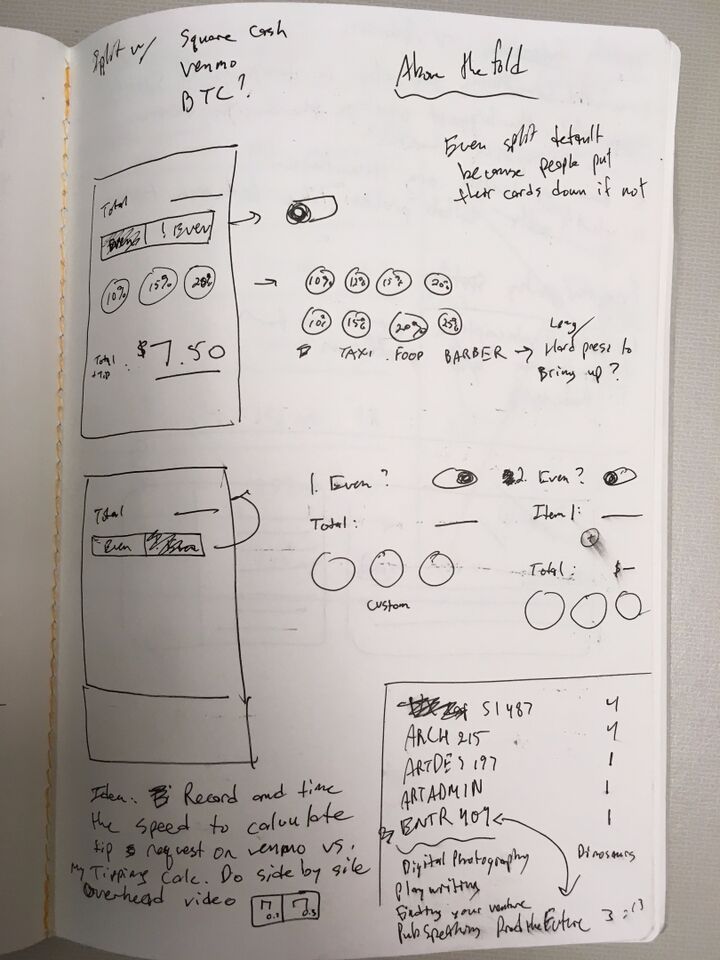 Split w/
Square Cash
Venmo
BTC?
Above the fold
Even split default
because people put
their cards down if not
Total
Even ! Even
10% 15% 20%
10% 12% 15% 20%
10% 15% 20% 25%
TAXI FOOD BARBER → Long/
Hard press to
Bring up?
Total
+ Tip : $7.50
Total
Even
1. Even?
Total:
Custom
2. Even?
Item 1:
+
Total: $—
SI 487 4
ARCH 215 4
ARTDES 197 1
ARTADMIN 1
ENTR 407 1
Digital Photography
Dinosaurs
Playwriting
Finding your venture
Pub Speaking
the Future
Idea: Record and time
the speed to calculate
tip & request on venmo vs.
my Tipping Calc. Do side by side
overhead video